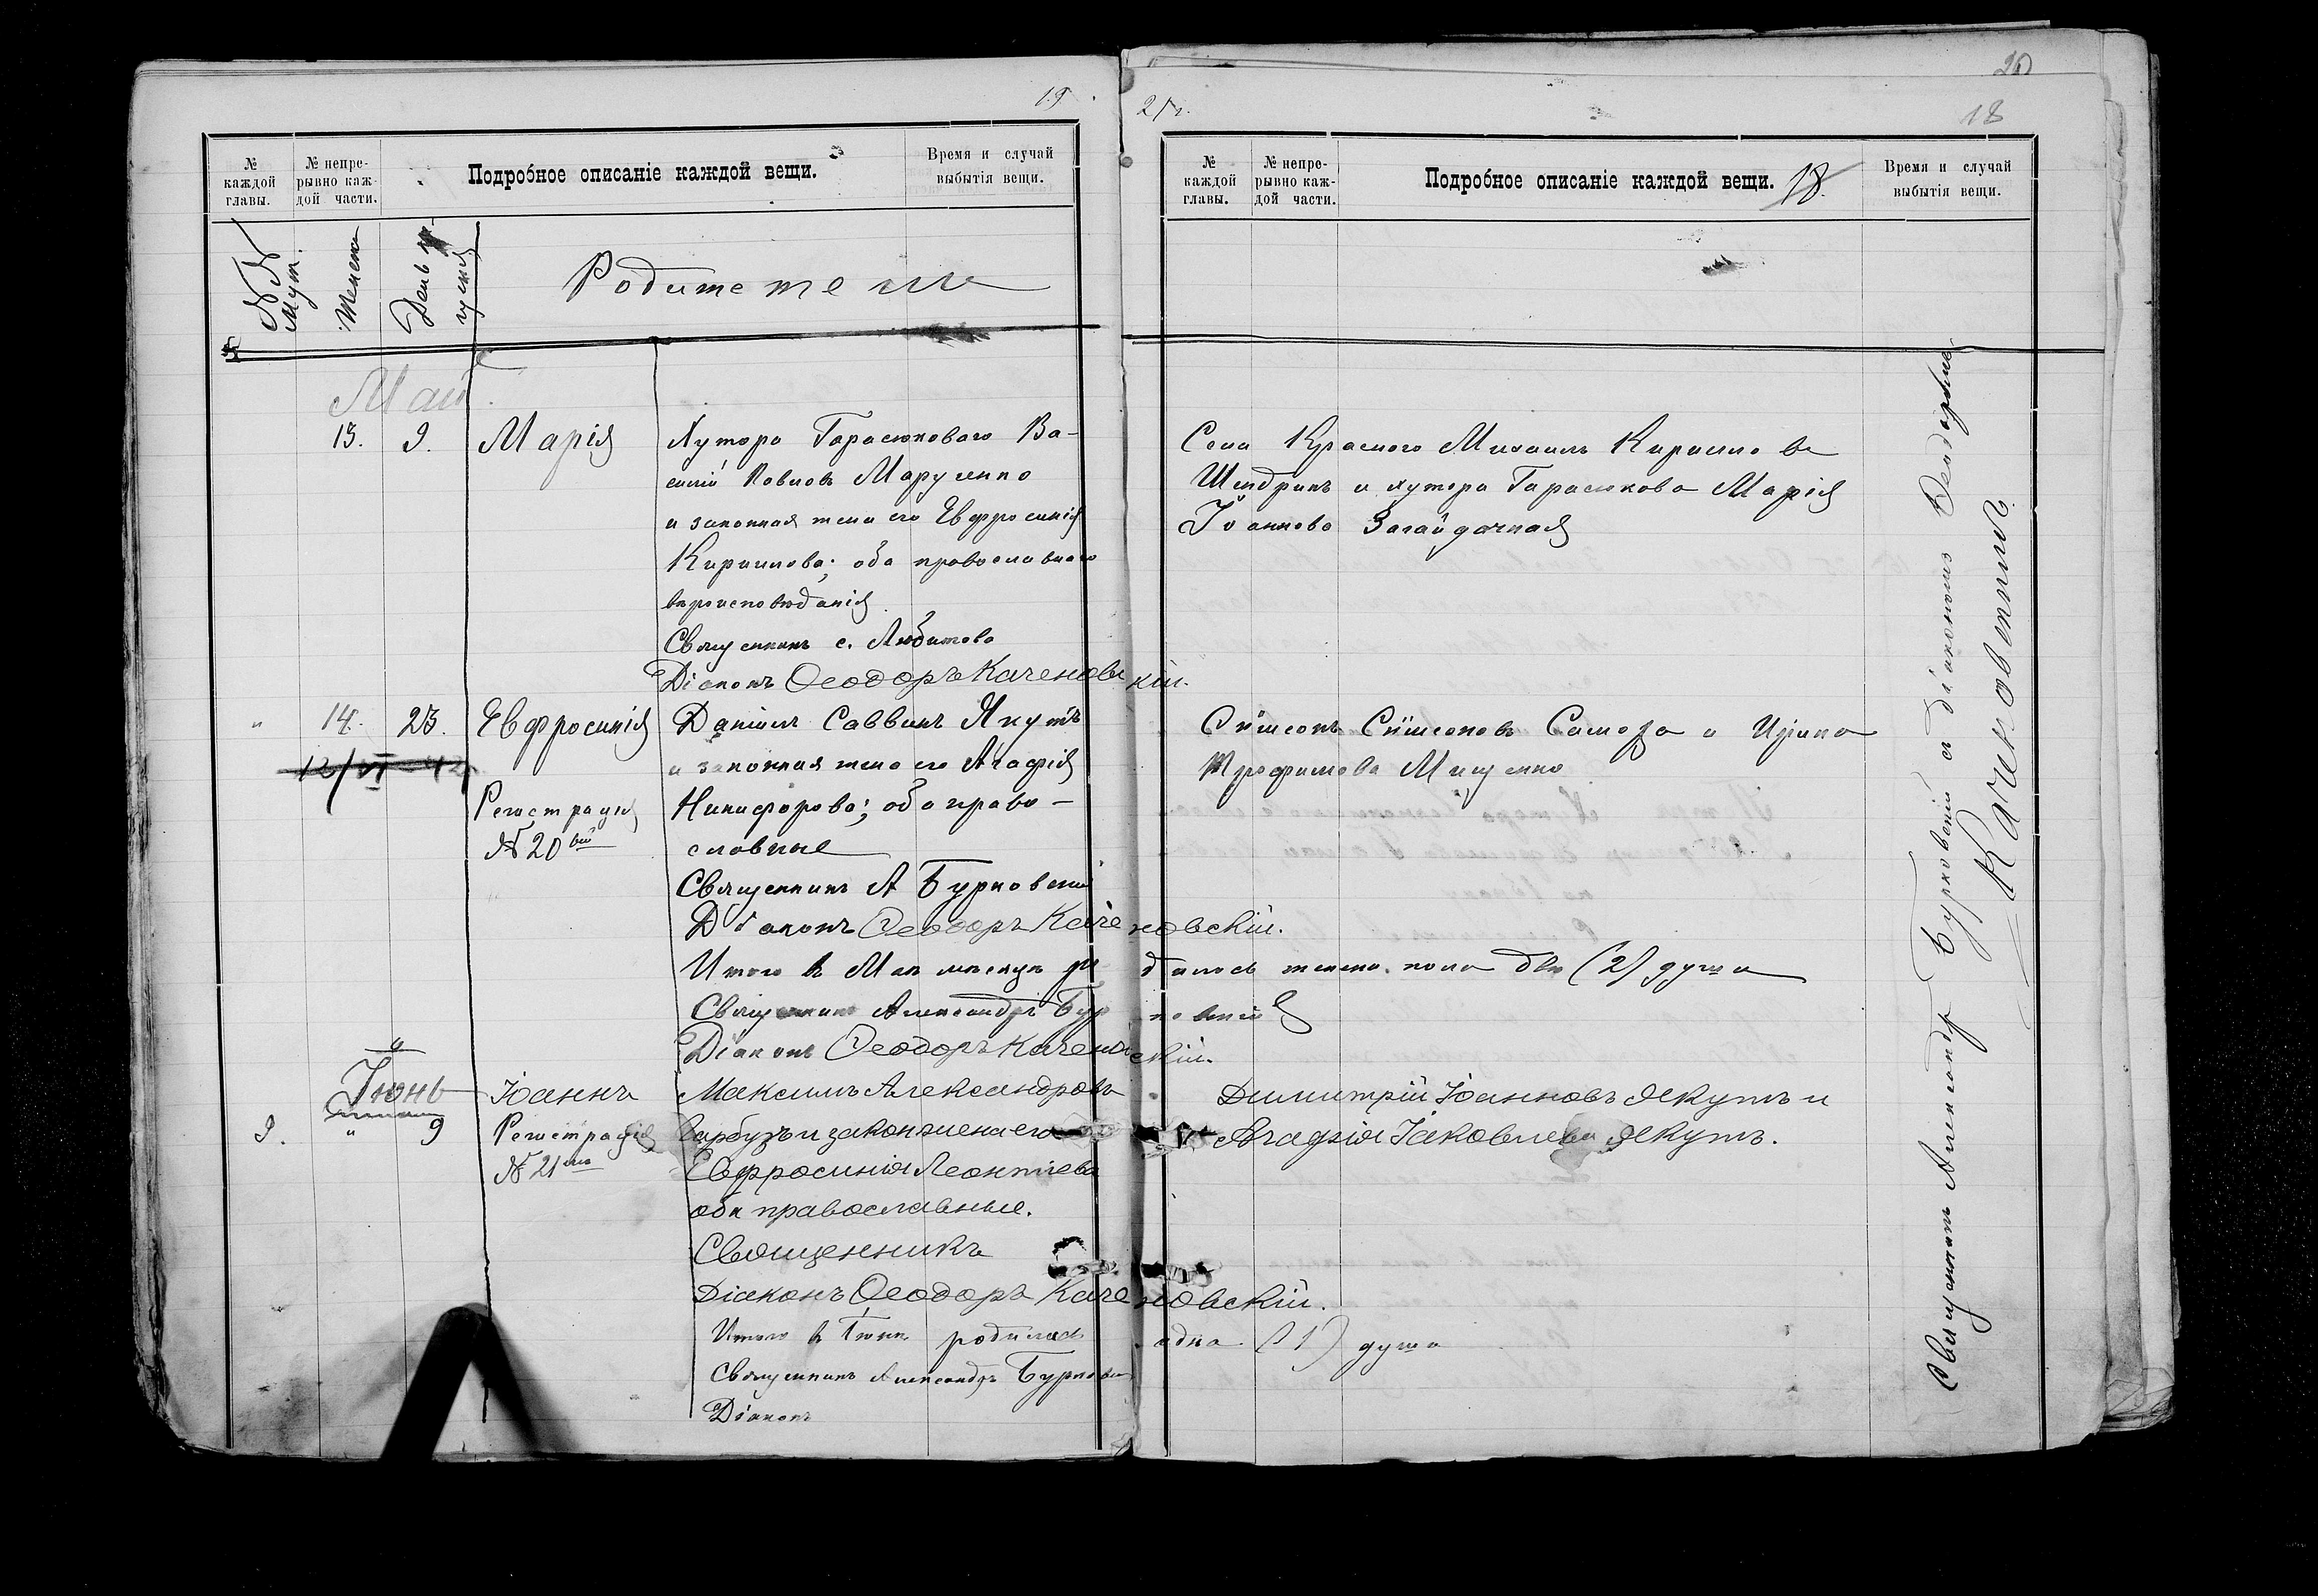 19
№ каждой главы.
№ непрерывно каждой части.
Подробное описаніе каждой вещи.
Время и случай выбытія вещи.
№№
Муж.
Женск
День
Родители
Май
13. 9. Марія
Хутора Гарасюковаго Ва-
силій Павловъ Марущенко
и законная жена его Евфросинія
Кириллова; оба православнаго
вѣроисповѣданія.
Священникъ с. Любитово
Діаконъ Ѳеодоръ Каченовскій.
" 14. 23. Евфросинія
Даніилъ Саввинъ Якутъ
12/VI-42
и законная жена его Агафія
Регистрація
№ 20вый
Никифорова; оба право-
славные
Священникъ А Бурковскій
Діаконъ Ѳеодоръ Каченовскій.
Итого въ Маѣ мѣсяцѣ родилось женск. пола двѣ (2) души
Священникъ Александръ Бурковскій
Діаконъ Ѳеодоръ Каченовскій.
Іюнь
9. " 9 Іоаннъ
Регистрація
№ 21
Максимъ Александровъ
Гарбузъ и закон. жена его
Евфросинія Леонтіева
оба православные.
Священникъ
Діаконъ Ѳеодоръ Каченовскій.
Итого въ Іюнѣ родилась одна (1) душа
Священникъ Александръ Бурковскій
Діаконъ
20
18
№ каждой главы.
№ непрерывно каждой части.
Подробное описаніе каждой вещи.
18.
Время и случай выбытія вещи.
Села Красного Михаилъ Кирилловъ
Шендрикъ и хутора Гарасюкова Марія
Іоаннова Загайдачная
Сѵмеонъ Сѵмеоновъ Самоза и Ирина
Трофимова Мищенко
Димитрій Іоанновъ Якутъ и
Агафія Іаковлева Якутъ.
Священникъ Александръ Бурковскій съ діакономъ Ѳеодоромъ
Каченовскимъ